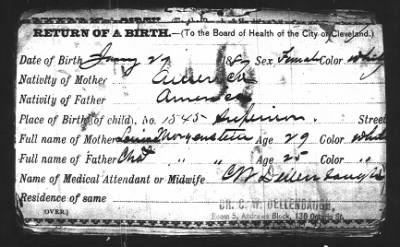 RETURN OF A BIRTH.—(To the Board of Health of the City of Cleveland.)
Date of Birth Jany 29 1887 Sex Female Color White
Nativity of Mother America
Nativity of Father America
Place of Birth (of child), No. 1545 Superior. Street
Full name of Mother Louise Morgenstein Age 29 Color White
Full name of Father Chas " " Age 25 Color "
Name of Medical Attendant or Midwife CW Dellenbaugh
Residence of same DR. C. W. DELLENBAUGH,
(OVER.) Room 5, Andrews Block, 136 Ontario St.